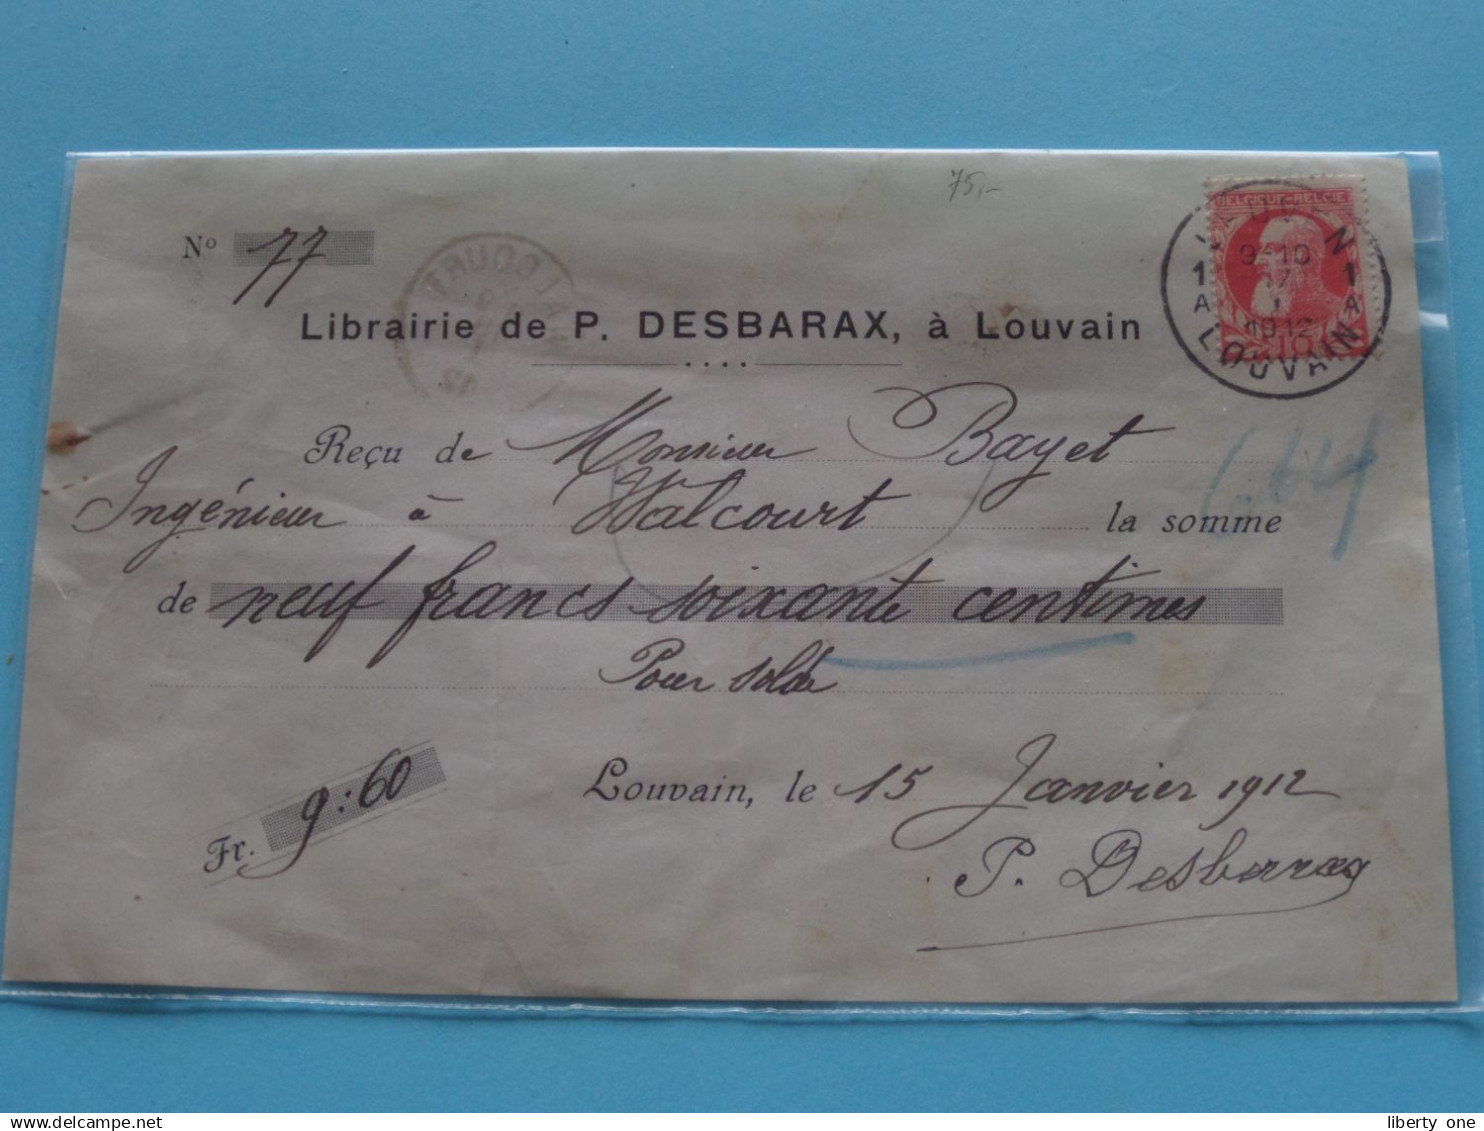 75,-
BELGIQUE-BELGIE
LEUVEN
9-10
1 17 1
A I A
1912
10
LOUVAIN
Nº 77
WALCOURT
Librairie de P. DESBARAX, à Louvain
Reçu de Monsieur Bayet
Ingénieur à Walcourt la somme
de neuf francs soixante centimes
Pour solde
Fr. 9:60
Louvain, le 15 Janvier 1912
P. Desbarax
delcampe.net
liberty_one